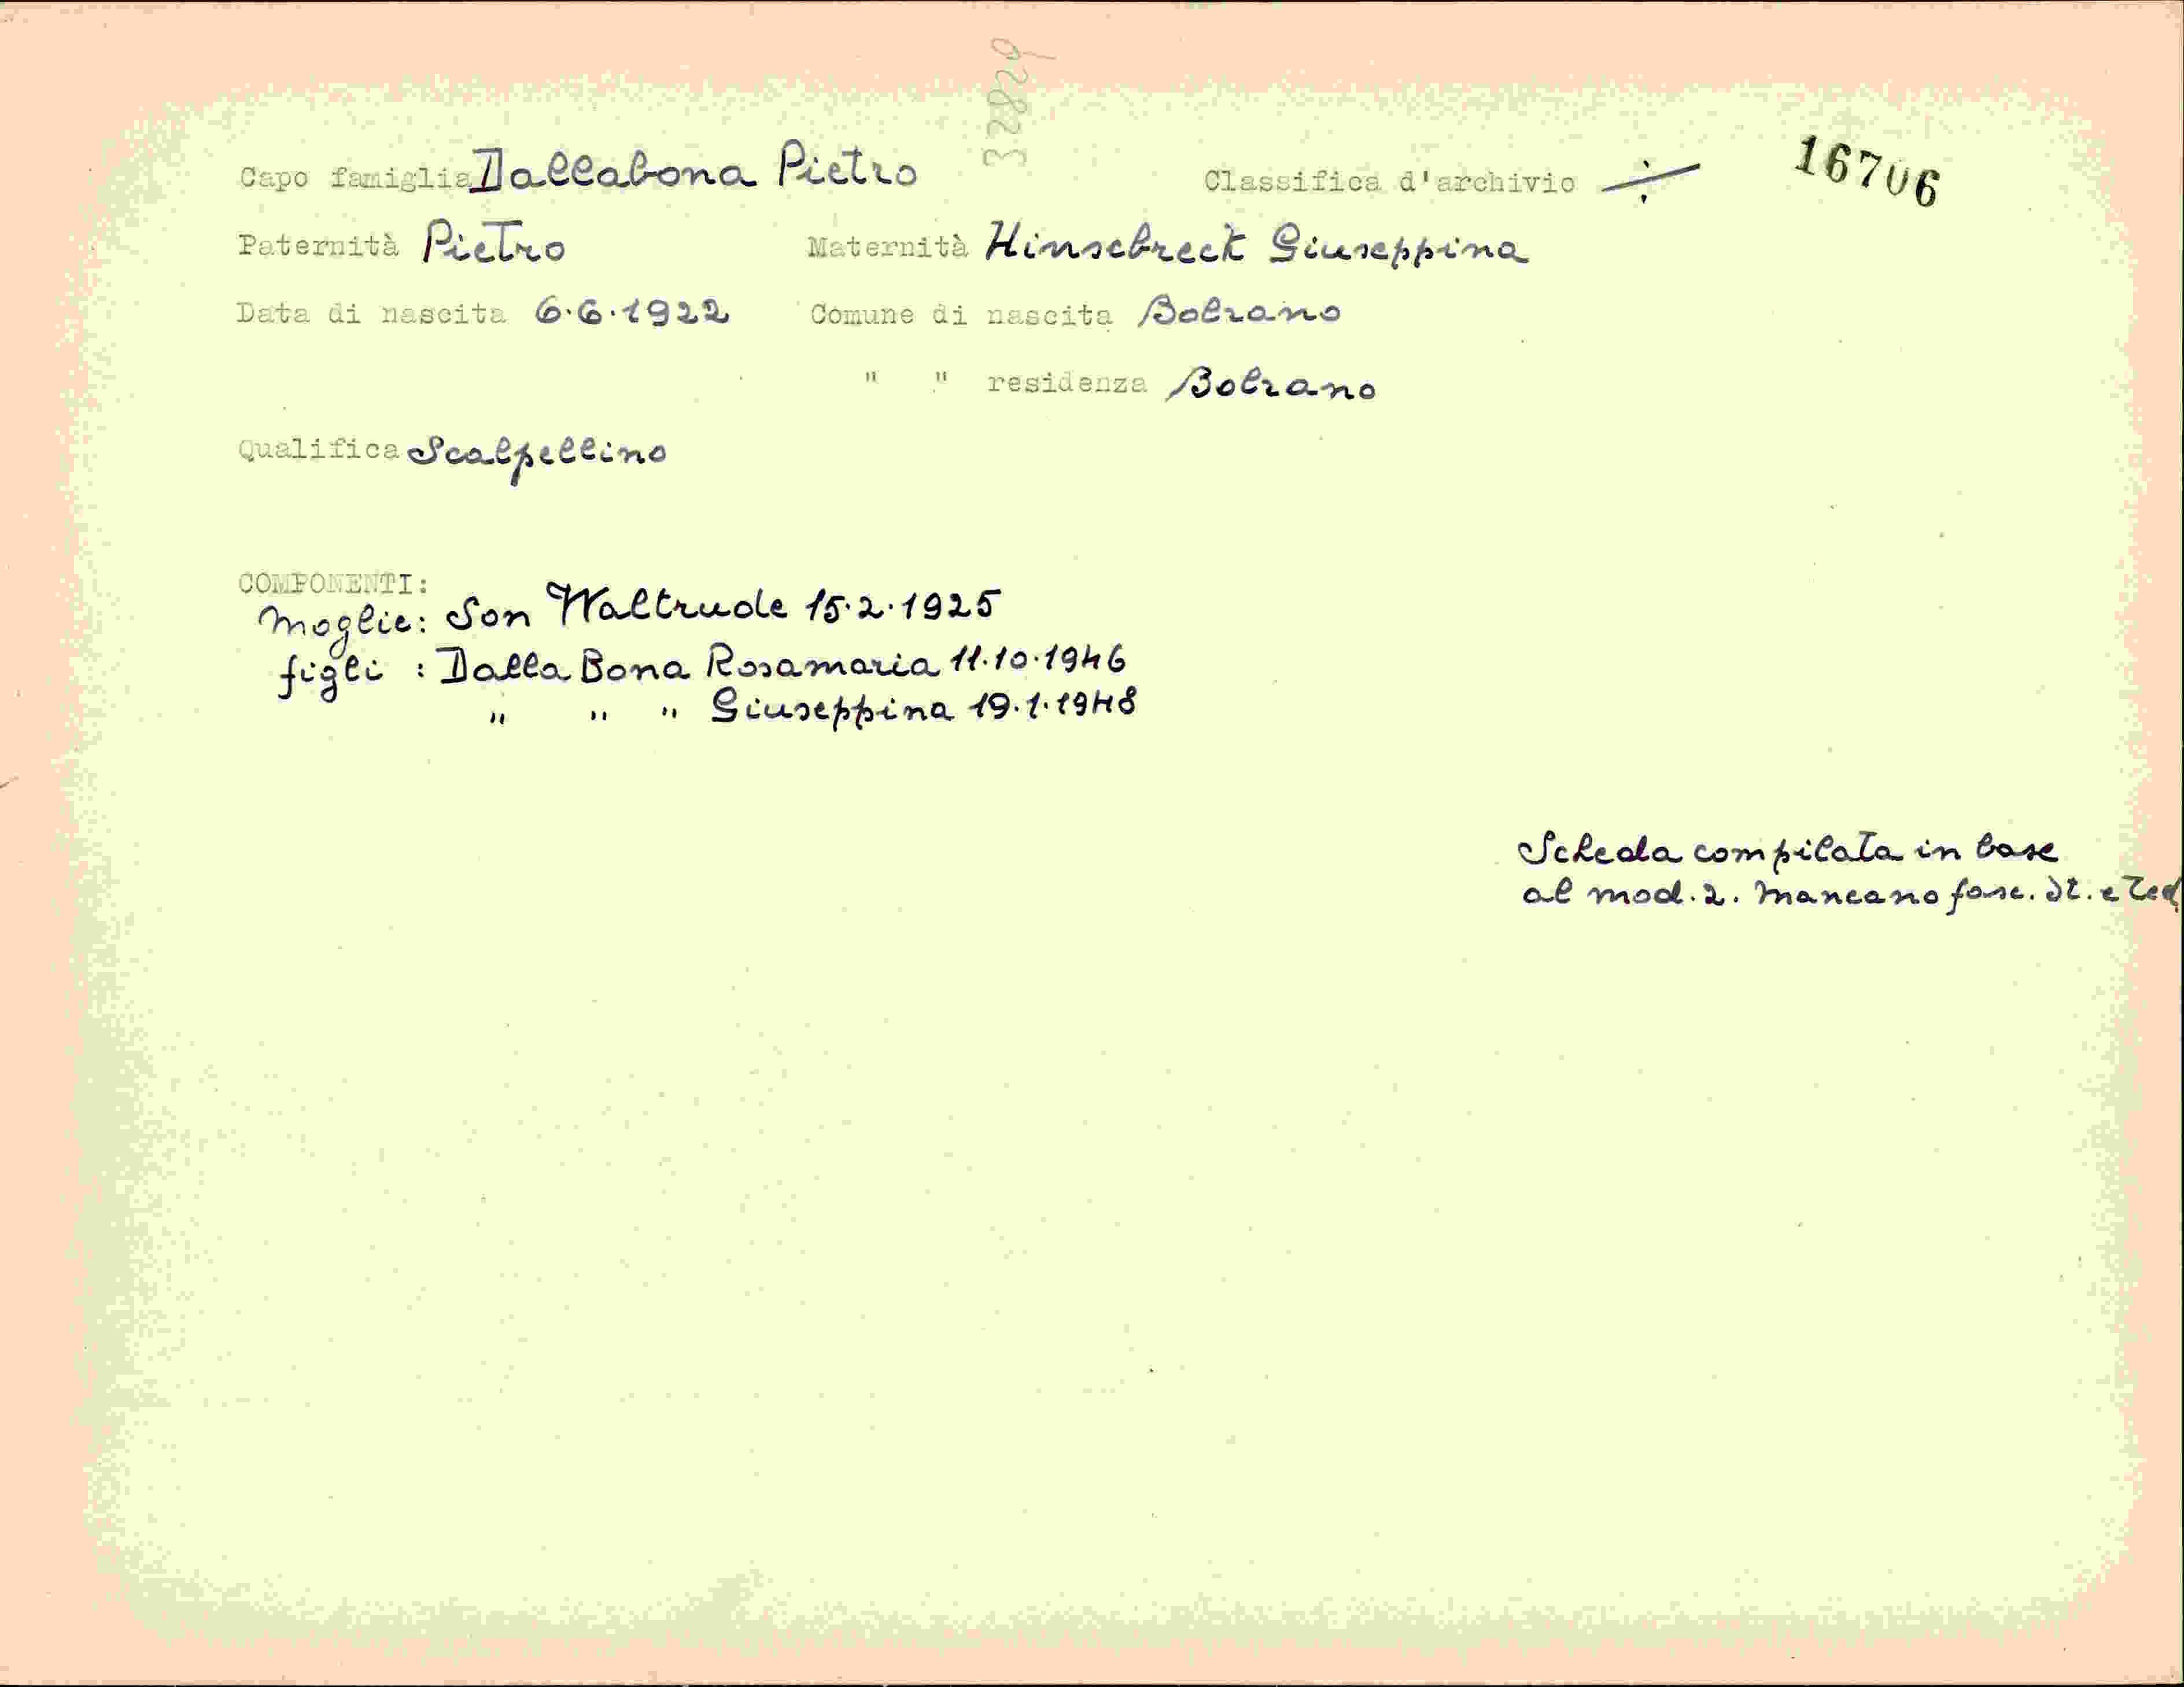 32829
Capo famiglia Dallabona Pietro Classifica d'archivio ÷ 16706
Paternità Pietro Maternità Hinsebreck Giuseppina
Data di nascita 6.6.1922 Comune di nascita Bolzano
" " residenza Bolzano
Qualifica Scalpellino
COMPONENTI:
Moglie: Son Waltrude 15.2.1925
figli : Dalla Bona Rosamaria 11.10.1946
" " " Giuseppina 19.1.1948
Scheda compilata in base
al mod. 2. Mancano fasc. It. e Ted.